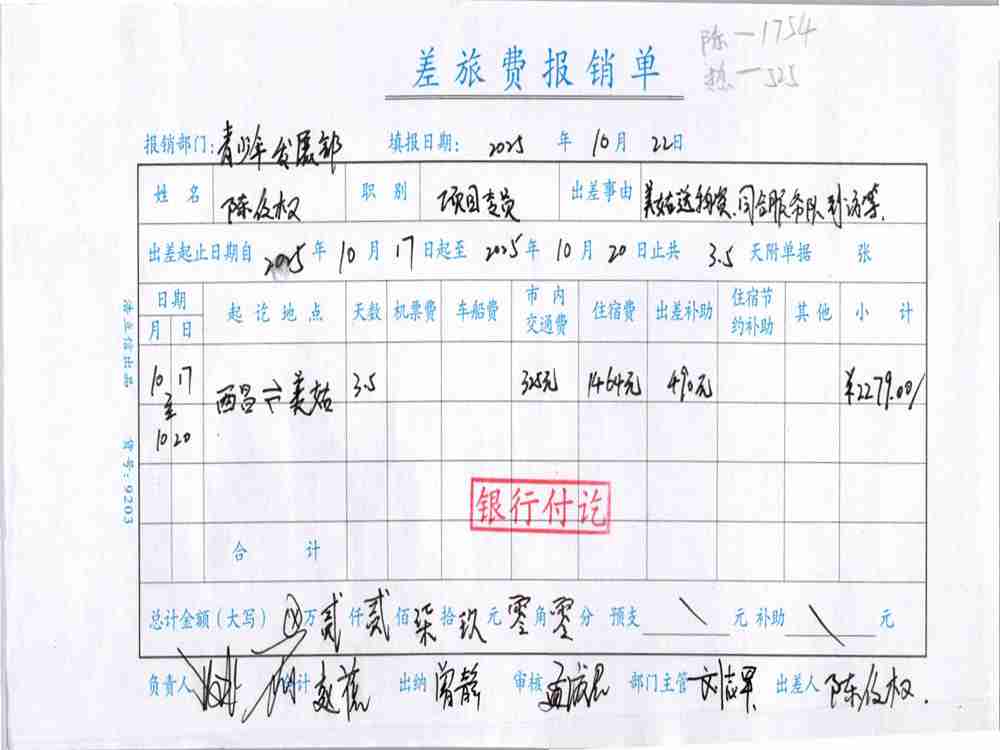 陈一1754
差旅费报销单
525
报销部门:青少年发展部 填报日期: 2025 年 10 月 22 日
姓名 陈俊权 职别 项目专员 出差事由 美姑送物资、同合服务队到访等.
出差起止日期自 2025 年 10 月 17 日起至 2025 年 10 月 20 日止共 3.5 天附单据 张
日期 起讫地点 天数 机票费 车船费 市内交通费 住宿费 出差补助 住宿节约补助 其他 小计
月 日
10 17 西昌⇌美姑 3.5 325元 1464元 490元 ¥2279.00/
至
10 20
银行付讫
合计
总计金额(大写) ⊗万贰仟贰佰柒拾玖元零角零分 预支 \ 元 补助 \ 元
负责人 会计 赵 出纳 曾静 审核 部门主管 刘志军 出差人 陈俊权.
货号:9203